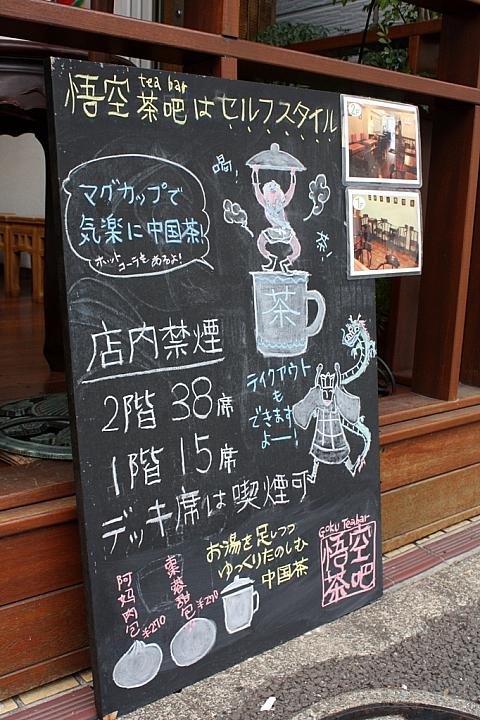 tea bar
悟空 茶吧はセルフスタイル
マグカップで
気楽に中国茶!
ホットコーラもあるよ!
喝!
茶!
茶
店内禁煙
2階 38席
1階 15席
デッキ席は喫煙可
テイクアウト
も
できます
よー!
お湯を足しつつ
ゆっくりたのしむ
中国茶
阿妈肉包 ¥270
棗蓉甜包 ¥270
Goku Teabar
悟空
茶吧
2F
1F